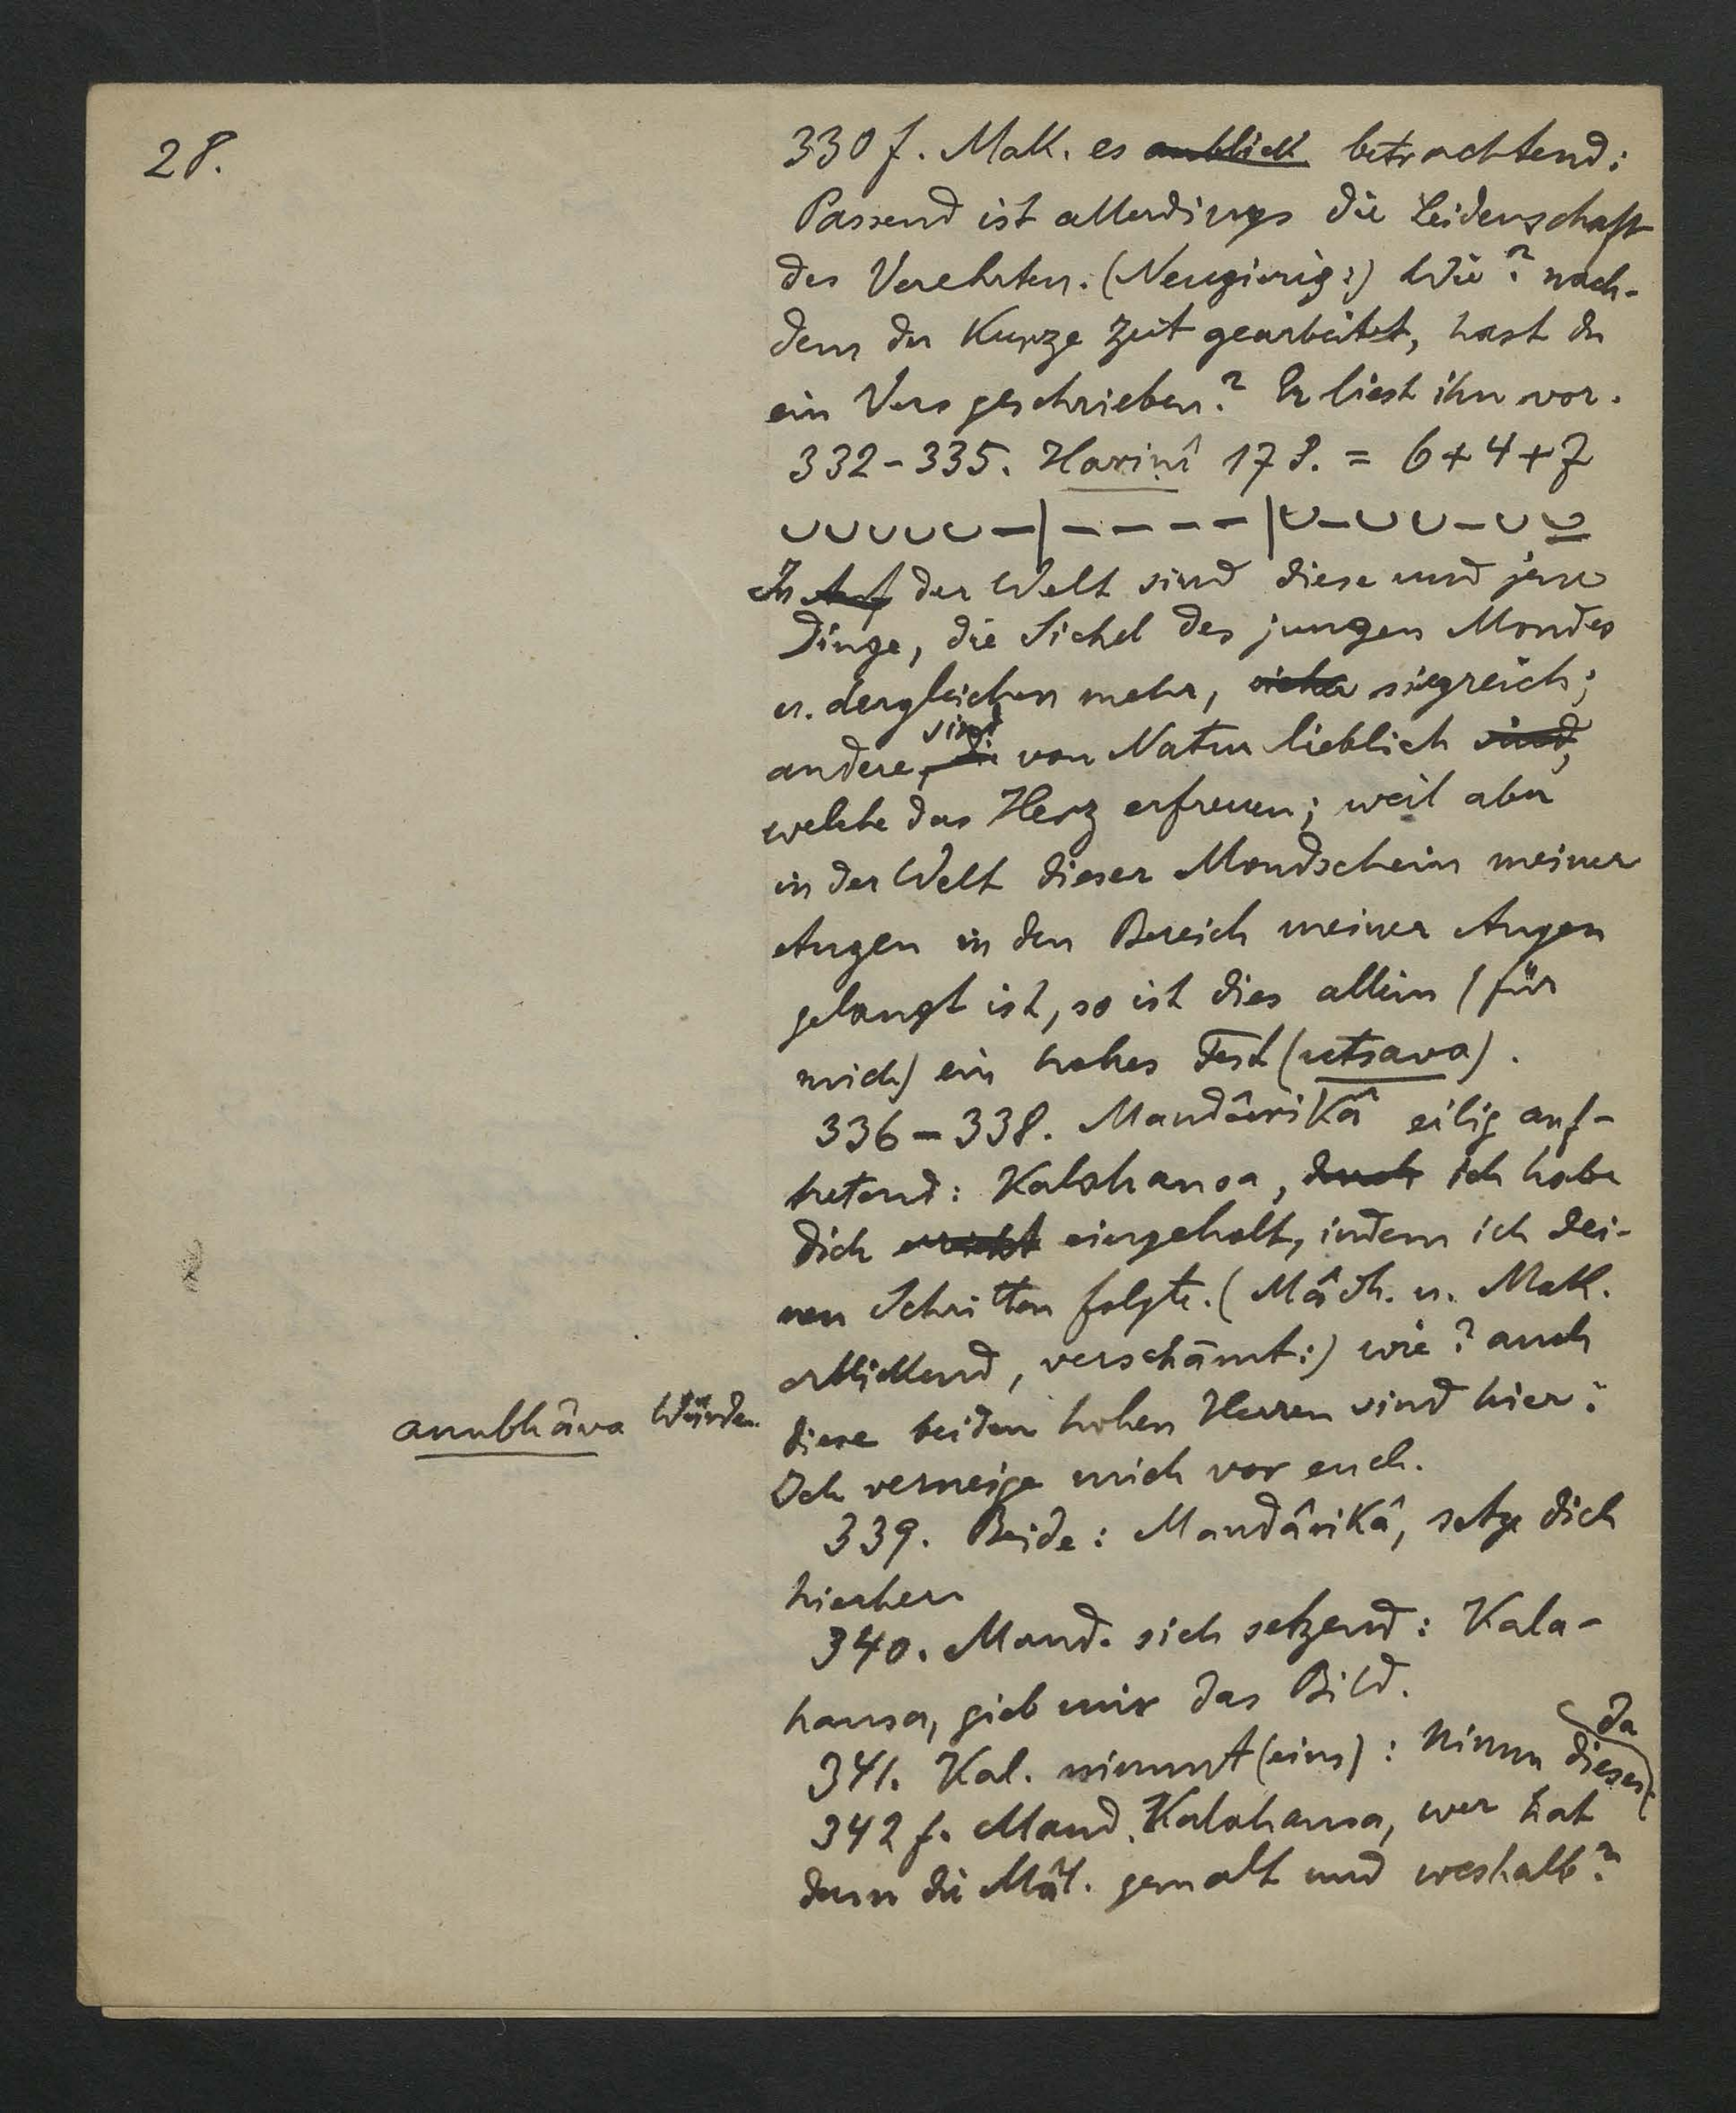 28.
330 f. Mak. es anblick betrachtend:
Passend ist allerdings die Leidenschaft
des Verehrten. (Neugierig:) Wie? nach-
dem du kurze Zeit gearbeitet, hast du
ein Vers geschrieben? Er liest ihn vor.
332-335. Harinî 17 S. = 6+4+7
∪∪∪∪∪–|––––|∪–∪∪–∪∪
In Auf der Welt sind diese und jene
Dinge, die Sichel des jungen Mondes
u. dergleichen mehr, siegreich;
sind
andere, die von Natur lieblich sind,
welche das Herz erfreuen; weil aber
in der Welt dieser Mondschein meiner
Augen in den Bereich meiner Augen
gelangt ist, so ist dies allein (für
mich) ein hohes Fest (utsava).
336-338. Mandârikâ eilig auf-
tretend: Kalahansa, durch ich habe
dich erreicht eingeholt, indem ich dei-
nen Schritten folgte. (Mâdh. u. Mak.
erblickend, verschämt:) wie? auch
diese beiden hohen Herren sind hier?
anubhâva Würde
Ich verneige mich vor euch.
339. Beide: Mandârikâ, setze dich
hierher
340. Mand. sich setzend: Kala-
hansa, gieb mir das Bild.
da
341. Kal. nimmt (eins): Nimm dieses
342 f. Mand. Kalahansa, wer hat
denn die Mâl. gemalt und weshalb?